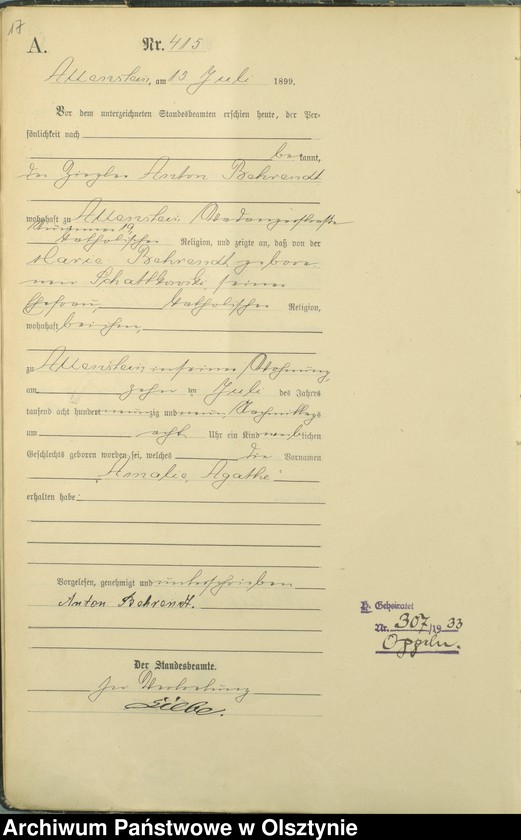 17
A.
Nr. 415
Allenstein, am 13 Juli 1899.
Vor dem unterzeichneten Standesbeamten erschien heute, der Per-
sönlichkeit nach
bekannt,
der Ziegler Anton Behrendt
wohnhaft zu Allenstein,
Nummer 19,
katholischer Religion, und zeigte an, daß von der
Marie Behrendt gebore-
nen Schattkowski, seiner
Ehefrau, katholischer Religion,
wohnhaft bei ihm,
zu Allenstein in seiner Wohnung,
am zehn ten Juli des Jahres
tausend acht hundert neunzig und neun Nachmittags
um acht Uhr ein Kind weiblichen
Geschlechts geboren worden sei, welches die Vornamen
Amalie, Agathe
erhalten habe:
Vorgelesen, genehmigt und unterschrieben
Anton Behrendt.
Der Standesbeamte.
In Vertretung
H. Geheiratet
Nr. 307/1933
Oppeln.
Archiwum Państwowe w Olsztynie